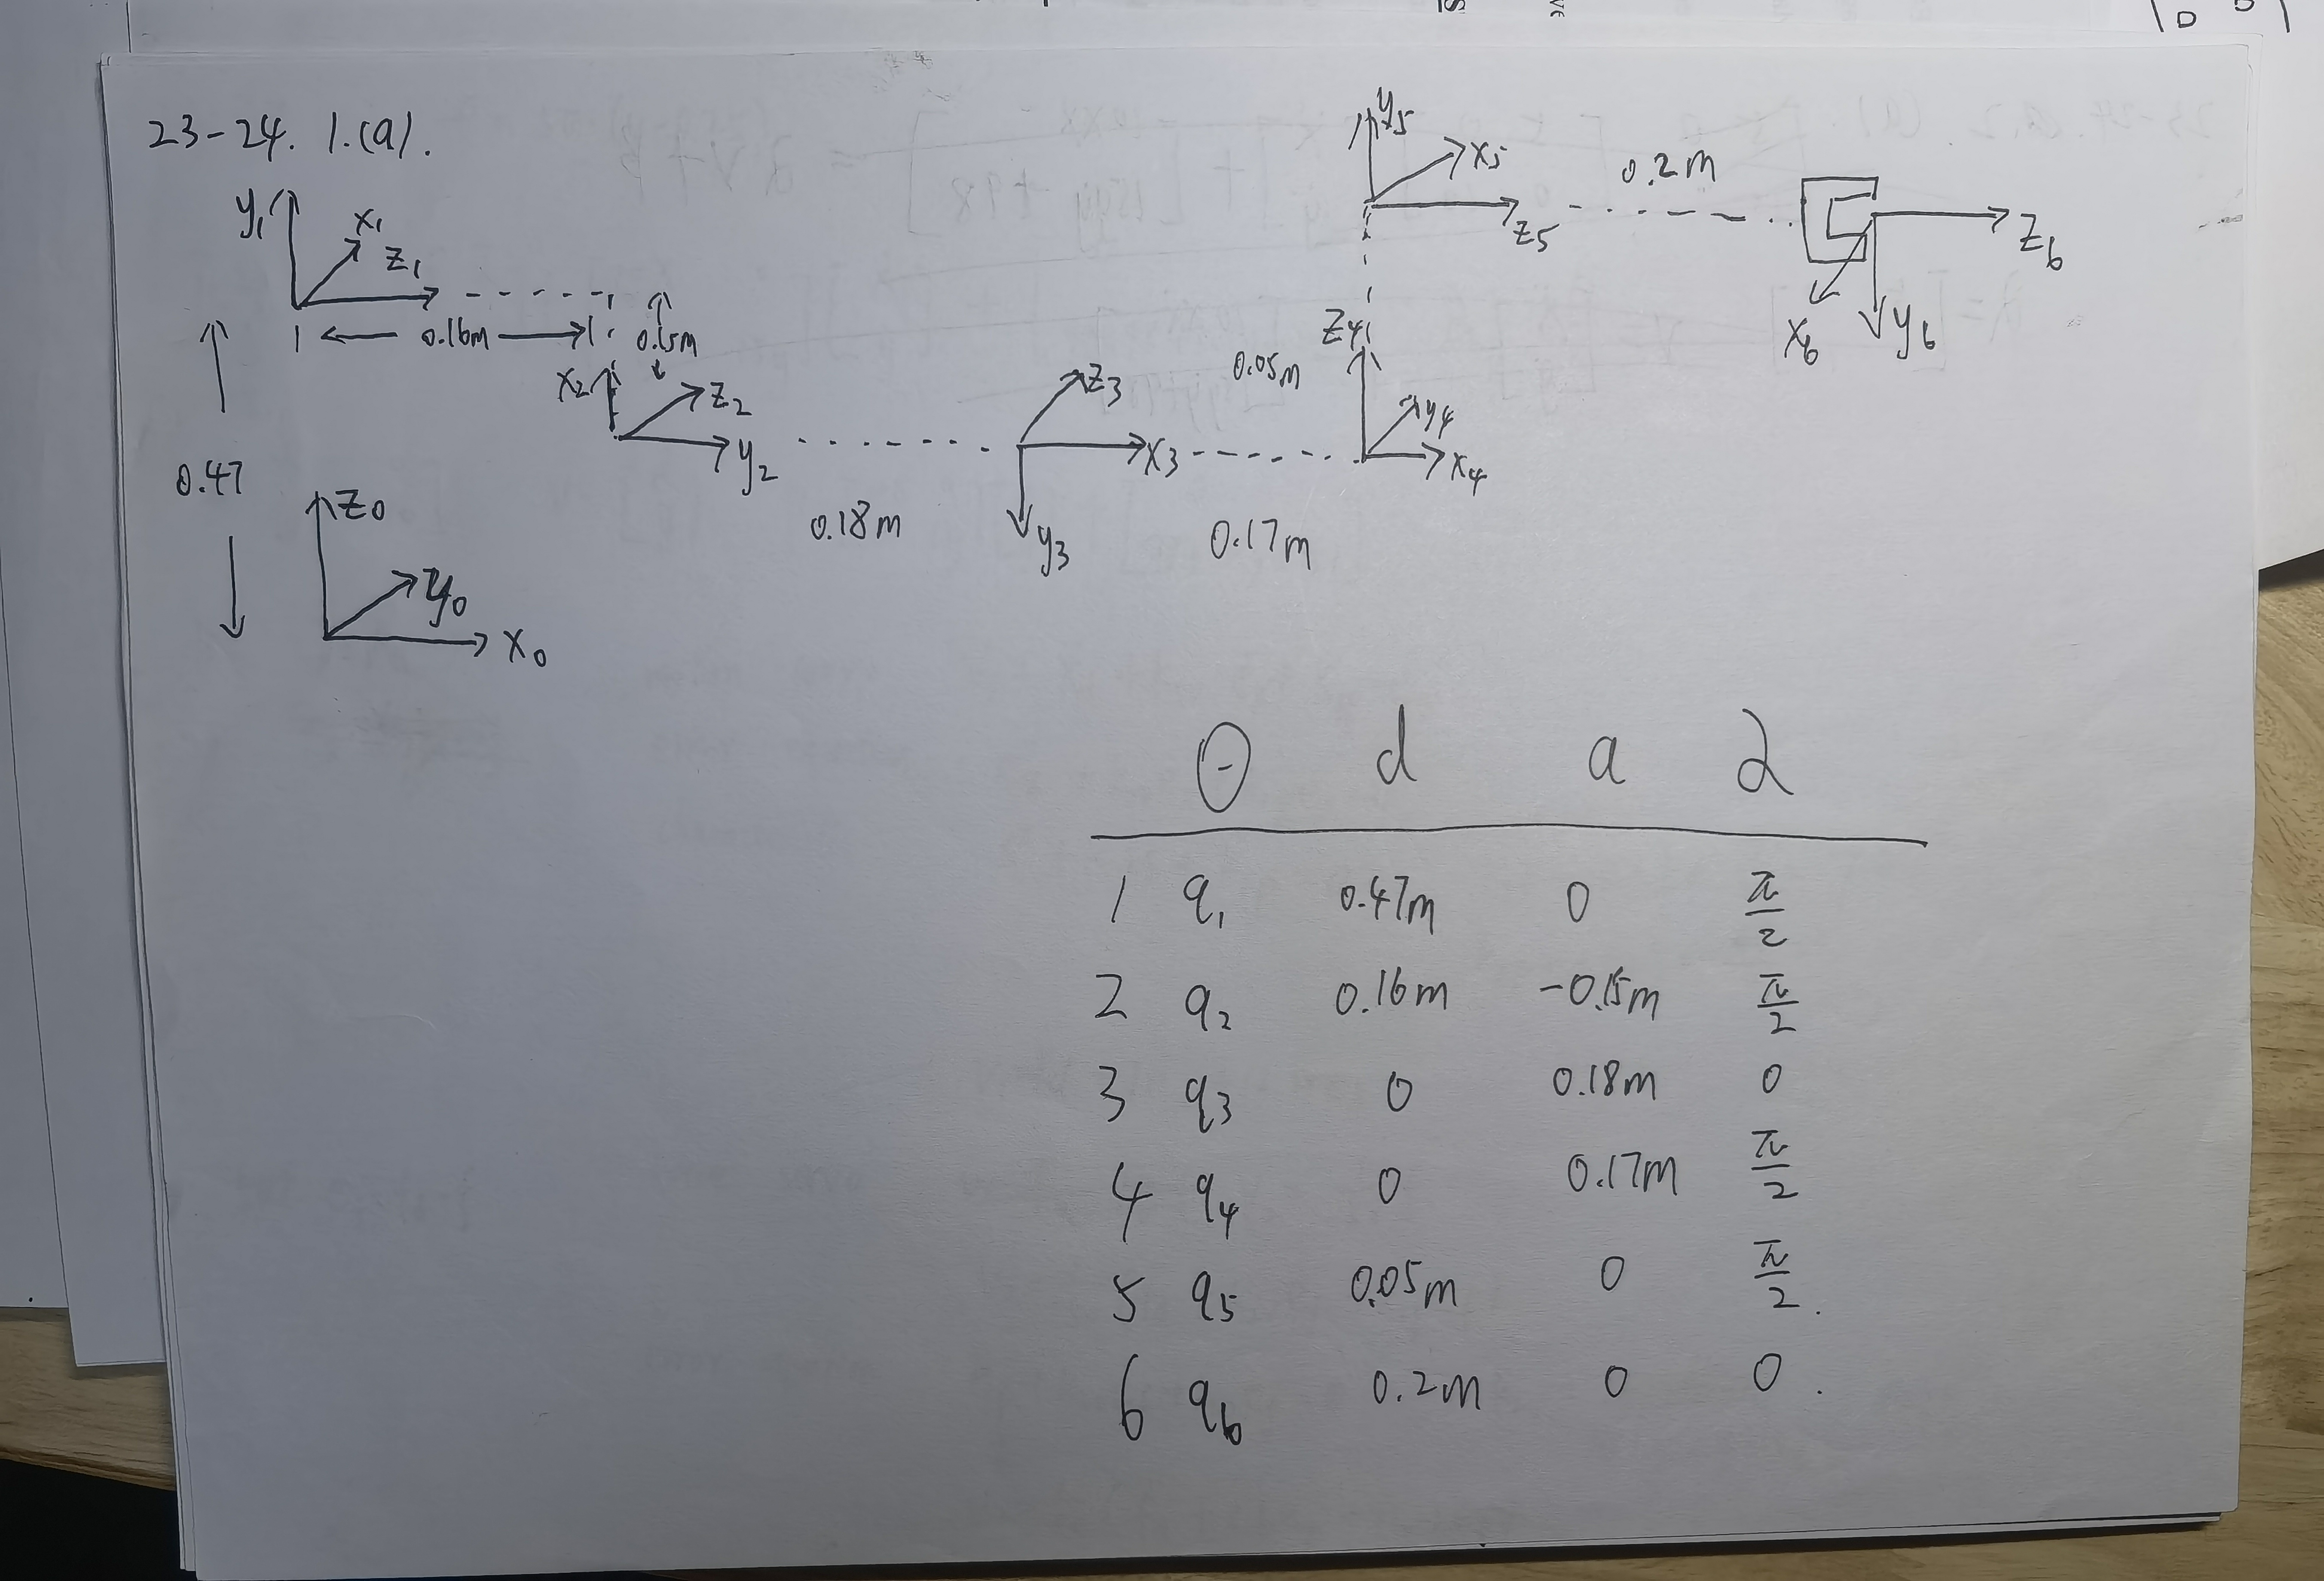 23-24. 1.(a).
y1
x1
z1
0.16m
0.15m
x2
z2
y2
0.47
z0
y0
x0
0.18m
z3
x3
y3
0.17m
0.05m
z4
y4
x4
y5
x5
z5
0.2m
z6
x6
y6
θ d a α
1 q1 0.47m 0 π/2
2 q2 0.16m -0.15m π/2
3 q3 0 0.18m 0
4 q4 0 0.17m π/2
5 q5 0.05m 0 π/2.
6 q6 0.2m 0 0.